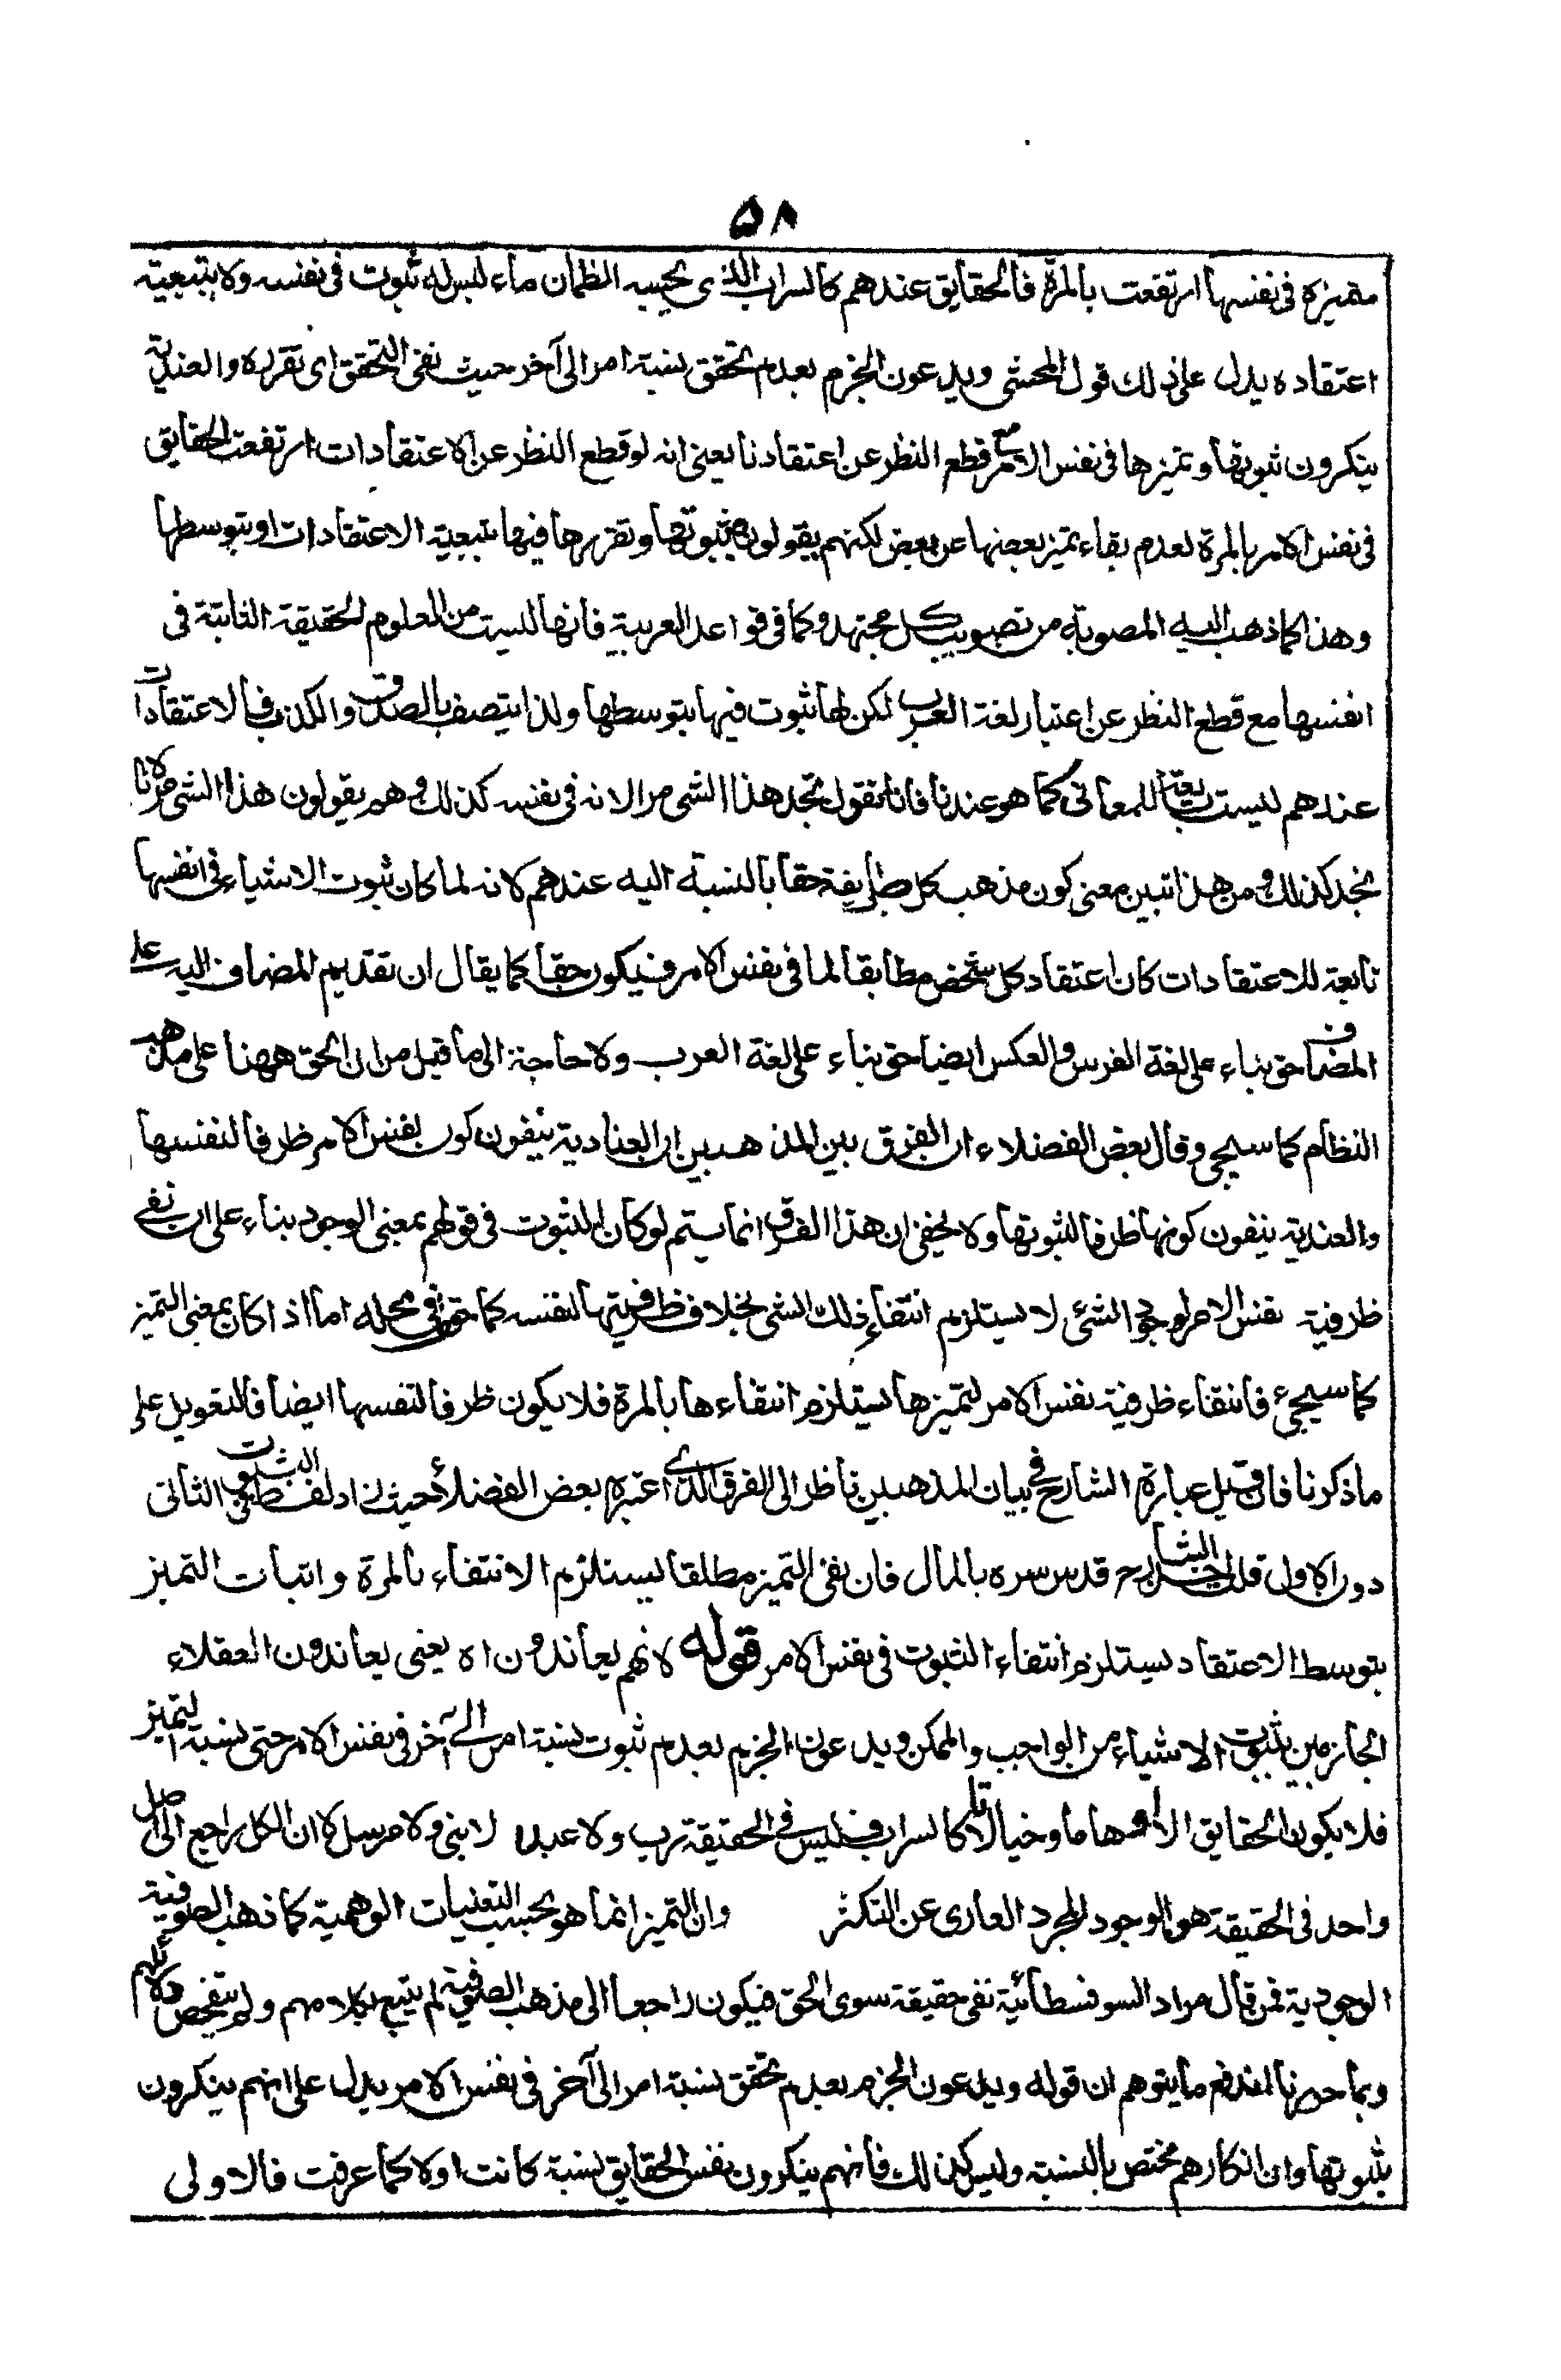 ۵۸
متميزة في نفسها ارتفعت بالمرة فالحقايق عندهم كالسراب الذي يحسبه الظمان ماء ليس له ثبوت في نفسه ولا بتبعية
اعتقاده يدل على ذلك قول المحشي ويدعون الجزم بعدم تحقق نسبة امر الى آخر حيث نفى التحقق اى تقرره والعندية
ينكرون ثبوتها وتميزها في نفس الامر مع قطع النظر عن اعتقادنا يعنى انه لو قطع النظر عن الاعتقادات ارتفعت الحقايق
في نفس الامر بالمرة لعدم بقاء تميز بعضها عن بعض لكنهم يقولون بثبوتها وتقررها فيها بتبعية الاعتقادات او بتوسطها
وهذا كما ذهب اليه المصوبة من تصويب كل مجتهد وكما في قواعد العربية فانها ليست من العلوم الحقيقة الثابتة في
انفسها مع قطع النظر عن اعتبار لغة العرب لكن لها ثبوت فيها بتوسطها ولذا يتصف بالصدق والكذب فالاعتقادات
عندهم ليست تابعة للمعانى كما هو عندنا فانا نقول نجد هذا الشى مرا لانه في نفسه كذلك وهم يقولون هذا الشى مر لانا
نجد كذلك ومن هذا تبين معنى كون مذهب كل طايفة حقا بالنسبة اليه عندهم لانه لما كان ثبوت الاشياء في انفسها
تابعة للاعتقادات كان اعتقاد كل شخص مطابقا لما في نفس الامر فيكون حقا كما يقال ان تقديم المضاف اليه على
المضاف حق بناء على لغة الفرس والعكس ايضا حق بناء على لغة العرب ولا حاجة الى ما قيل من ان الحق ههنا على مذهب
النظام كما سيجى وقال بعض الفضلاء ان الفرق بين المذهبين ان العنادية ينفون كون نفس الامر ظرفا لنفسها
والعندية ينفون كونها ظرفا لثبوتها ولا يخفى ان هذا الفرق انما يستم لو كان الثبوت في قولهم بمعنى الوجود بناء على ان نفى
ظرفية نفس الامر لوجود الشئ لا يستلزم انتفاء ذلك الشى بخلاف ظرفيتها لنفسه كما حقق في محله اما اذا كان بمعنى التميز
كما سيجئ فانتفاء ظرفية نفس الامر لتميزها يستلزم انتفاءها بالمرة فلا يكون ظرفا لنفسها ايضا فالتعويل على
ما ذكرنا فان قيل عبارة الشارح في بيان المذهبين ناظر الى الفرق الذى اعتبره بعض الفضلاء حيث زاد لفظ الثبوت في الثانى
دون الاول قلت اخذ الشارح قدس سره بالمال فان نفى التميز مطلقا يستلزم الانتفاء بالمرة واثبات التميز
بتوسط الاعتقاد يستلزم انتفاء الثبوت في نفس الامر قوله لانهم يعاندون اه يعنى يعاندون العقلاء
الجازمين بثبوت الاشياء من الواجب والممكن ويدعون الجزم بعدم ثبوت نسبة امر الى آخر في نفس الامر حتى نسبة التميز
فلا يكون الحقايق الا اوهاما وخيالات كالسراب فليس في الحقيقة رب ولا عبد لا نبى ولا مرسل لان الكل راجع الى اصل
واحد في الحقيقة هو الوجود المجرد العارى عن التكثر وان التميز انما هو بحسب التعينات الوهمية كما ذهب الصوفية
الوجودية فمن قال مراد السوفسطائية نفى حقيقة سوى الحق فيكون راجعا الى مذهب الصوفية لم يتبع بكلامهم ولم يتفحص دلائلهم
وبما حررنا اندفع ما يتوهم ان قوله ويدعون الجزم بعدم تحقق نسبة امر الى آخر في نفس الامر يدل على انهم ينكرون
ثبوتها وان انكارهم مختص بالنسبة وليس كذلك فانهم ينكرون نفس الحقايق نسبة كانت اولا كما عرفت فالاولى